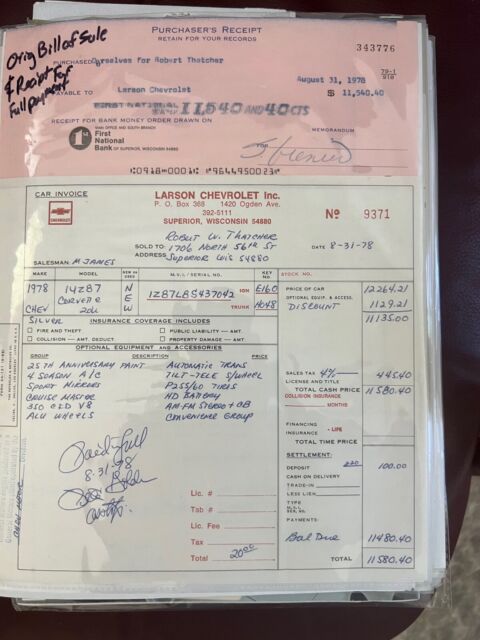 Orig Bill of Sale
& Receipt For
Full payment
PURCHASER'S RECEIPT
RETAIN FOR YOUR RECORDS
343776
PURCHASED Ourselves for Robert Thatcher
79-1
918
August 31, 1978
PAYABLE TO Larson Chevrolet $ 11,540.40
FIRST NATIONAL BANK 11,540 AND 40 CTS
RECEIPT FOR BANK MONEY ORDER DRAWN ON
MEMORANDUM
MAIN OFFICE AND SOUTH BRANCH
First
National
Bank OF SUPERIOR, WISCONSIN 54880
FOR
CAR INVOICE
CHEVROLET
LARSON CHEVROLET Inc.
P. O. Box 368 1420 Ogden Ave.
392-5111
SUPERIOR, WISCONSIN 54880
No 9371
SOLD TO: Robert W. Thatcher
1706 North 56th St
ADDRESS Superior Wis 54880
DATE 8-31-78
SALESMAN M James
MAKE MODEL NEW OR USED M.V.I. / SERIAL NO. KEY NO. STOCK NO.
1978 1YZ87 NEW 1Z87L8S437042 IGN E160
CHEV Corvette 2dr TRUNK H048
PRICE OF CAR 12264.21
OPTIONAL EQUIP. & ACCESS.
Discount 1129.21
11135.00
Silver
INSURANCE COVERAGE INCLUDES
FIRE AND THEFT PUBLIC LIABILITY — AMT.
COLLISION — AMT. DEDUCT. PROPERTY DAMAGE — AMT.
OPTIONAL EQUIPMENT AND ACCESSORIES
GROUP DESCRIPTION PRICE
25th Anniversary Paint Automatic Trans
4 Season A/C Tilt-Tele S/Wheel
Sport Mirrors P255/60 Tires
Cruise Master HD Battery
350 CID V8 AM-FM Stereo + CB
Alu Wheels Convenience Group
SALES TAX 4% 445.40
LICENSE AND TITLE
TOTAL CASH PRICE 11580.40
COLLISION INSURANCE
MONTHS
FINANCING
INSURANCE - LIFE
TOTAL TIME PRICE
SETTLEMENT:
DEPOSIT 100.00
CASH ON DELIVERY
TRADE-IN
LESS LIEN
TYPE
M.V.I.
SER. NO.
PAYMENTS:
Bal Due 11480.40
TOTAL 11580.40
Paid Full
8-31-78
Lic. #
Tab #
Lic. Fee
Tax
Total 20.00